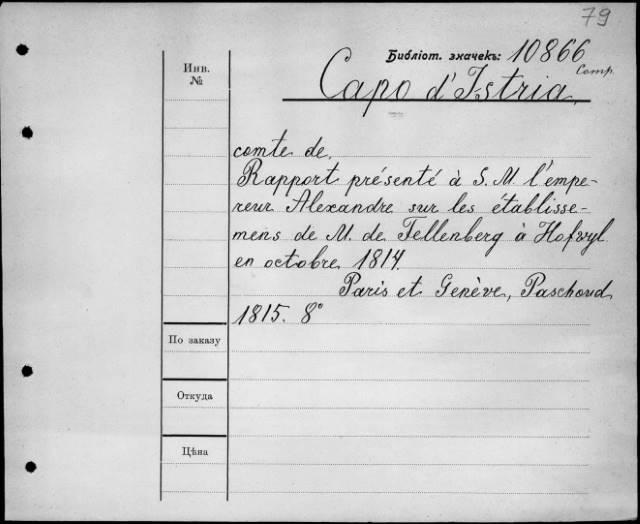 79
Библіот. значекъ: 10866
Comp.
Capo d'Istria,
Инв.
№
comte de.
Rapport présenté à S. M. l'empe-
reur Alexandre sur les établisse-
mens de M. de Fellenberg à Hofwyl
en octobre 1814.
Paris et Genève, Paschoud
1815. 8°
По заказу
Откуда
Цѣна